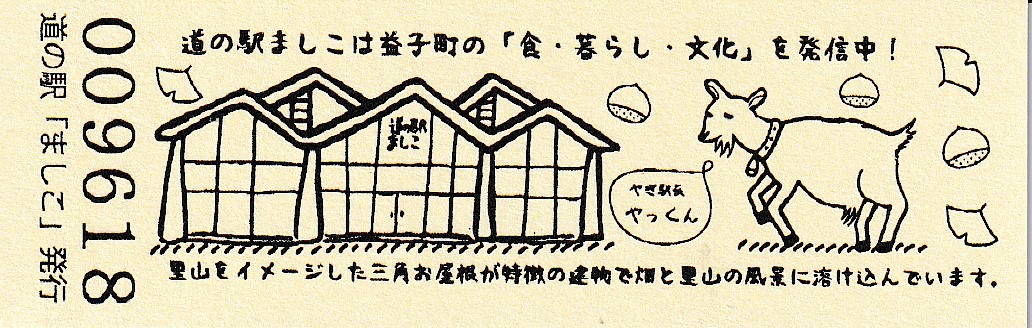 道の駅ましこは益子町の「食・暮らし・文化」を発信中！
道の駅
ましこ
やぎ駅長
やっくん
里山をイメージした三角お屋根が特徴の建物で畑と里山の風景に溶け込んでいます。
009618
道の駅「ましこ」発行